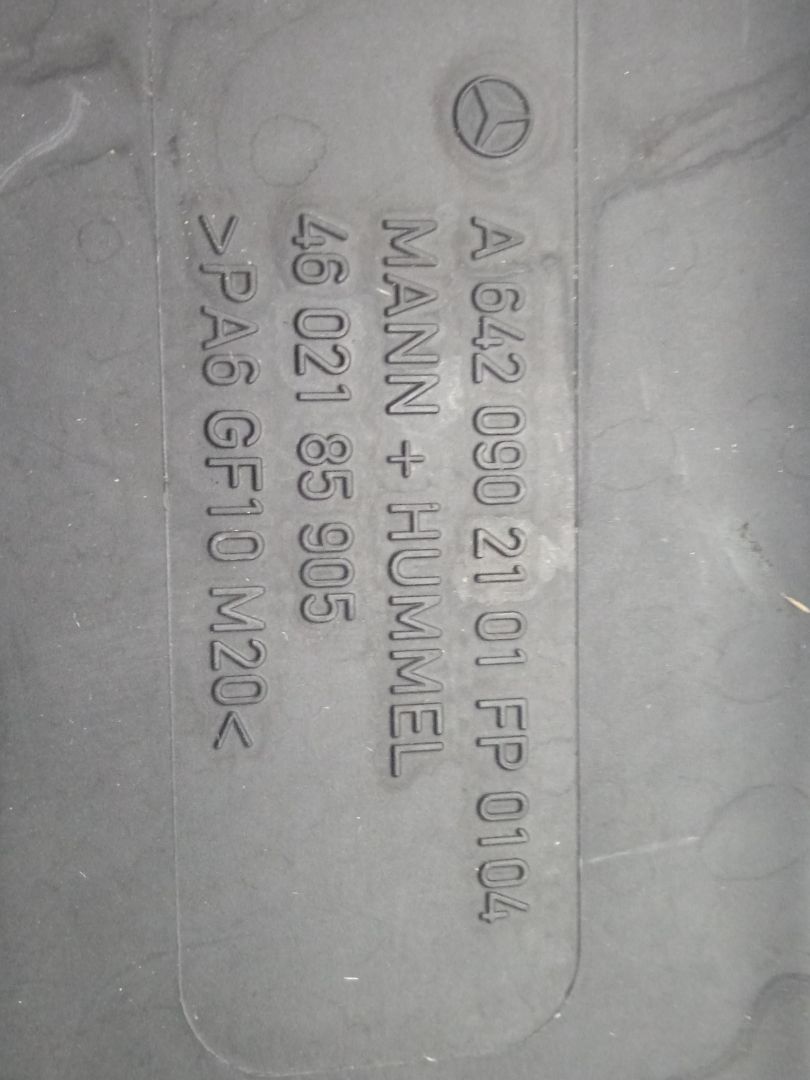 A 642 090 21 01 FP 0104
MANN + HUMMEL
46 021 85 905
>PA6 GF10 M20<